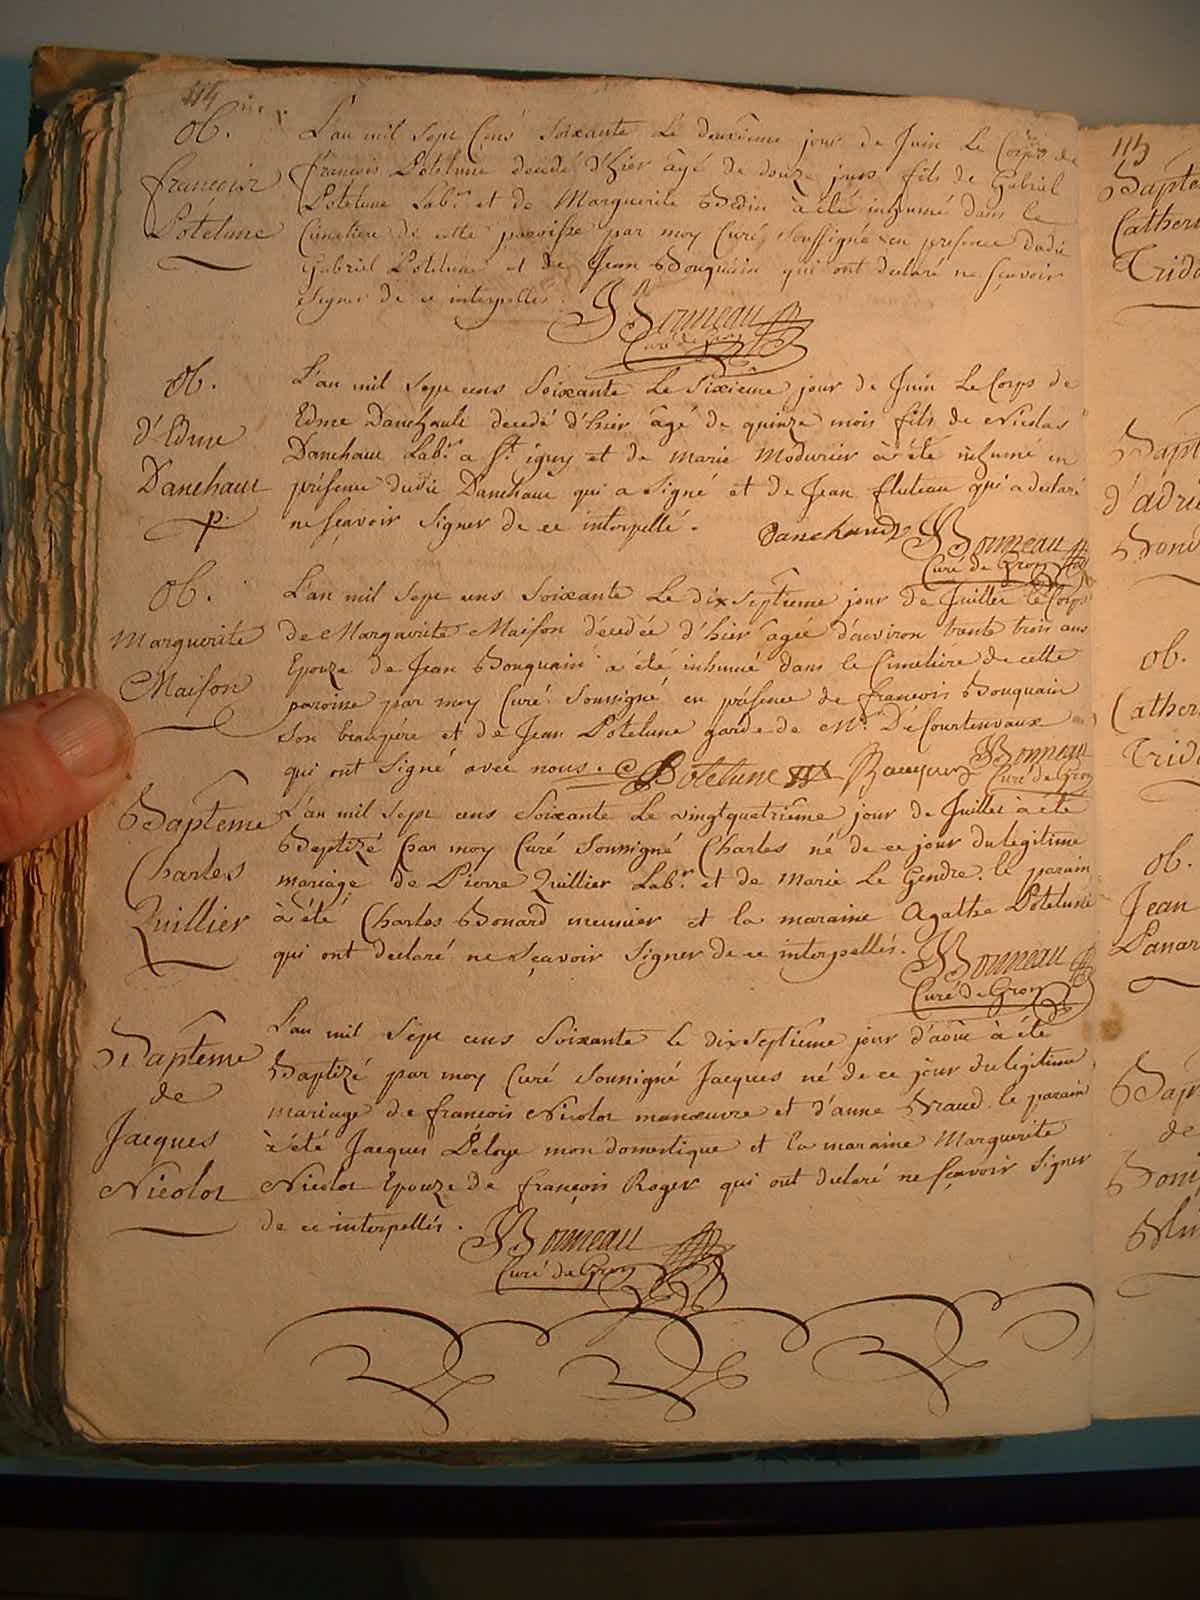 114
ob.
françois
Potelune
L'an mil sept cens soixante le deuxième jour de Juin le Corps de
françois Potelune decedé d'hier âgé de douze jours fils de Gabriel
Potelune Labr. et de Marguerite Bedin à été inhumé dans le
Cimetiere de cette paroisse par moy Curé soussigné en presence dudit
Gabriel Potelune et de Jean Bouquain qui ont declaré ne sçavoir
signer de ce interpellés.
JBonneau
Curé de Gron
ob.
d'Edme
Danchaut
p.
L'an mil sept cens Soixante Le Sixieme jour de Juin Le Corps de
Edme Danchault decedé d'hier âgé de quinze mois fils de Nicolas
Danchaut Labr. a St. et de Marie à été inhumé en
présence dudit Danchaut qui a Signé et de Jean fluteau qui a declaré
ne sçavoir signer de ce interpellé.
Danchaud JBonneau
Curé de Gron
ob.
Marguerite
Maison
L'an mil sept cens soixante Le dix septieme jour de Juillet le Corps
de Marguerite Maison décedée d'hier agée d'environ trente trois ans
Epouze de Jean Bouquain a été inhumé dans le Cimetiére de cette
paroisse par moy Curé soussigné en présence de françois Bouquain
son beaupère et de Jean Potelune garde de Mr. De Courtenvaux
qui ont signé avec nous. Potelune JBonneau
Curé de Gron
Baptême
Charles
Quillier
L'an mil sept cens Soixante Le vingtquatrième jour de Juillet à été
Baptizé par moy Curé soussigné Charles né de ce jour du legitime
mariage de Pierre Quillier Labr. et de Marie Le Gendre. le parain
à été Charles Bonard meunier et la maraine Agathe Potelune
qui ont declaré ne sçavoir signer de ce interpellés.
JBonneau
Curé de Gron
Baptême
de
Jacques
Nicolot
L'an mil sept cens Soixante le dix septieme jour d'aout à été
Baptizé par moy Curé soussigné Jacques né de ce jour du legitime
mariage de françois Nicolot manœuvre et d'anne le parain
à été Jacques Déloye mon domestique et la maraine Marguerite
Nicolot Epouze de françois Roger qui ont declaré ne sçavoir signer
de ce interpellés.
JBonneau
Curé de Gron
115
Bapte
Cather
Trida
Bapt
d'adri
Boni
ob.
Cather
Trid
ob.
Jean
Panar
Bap
de